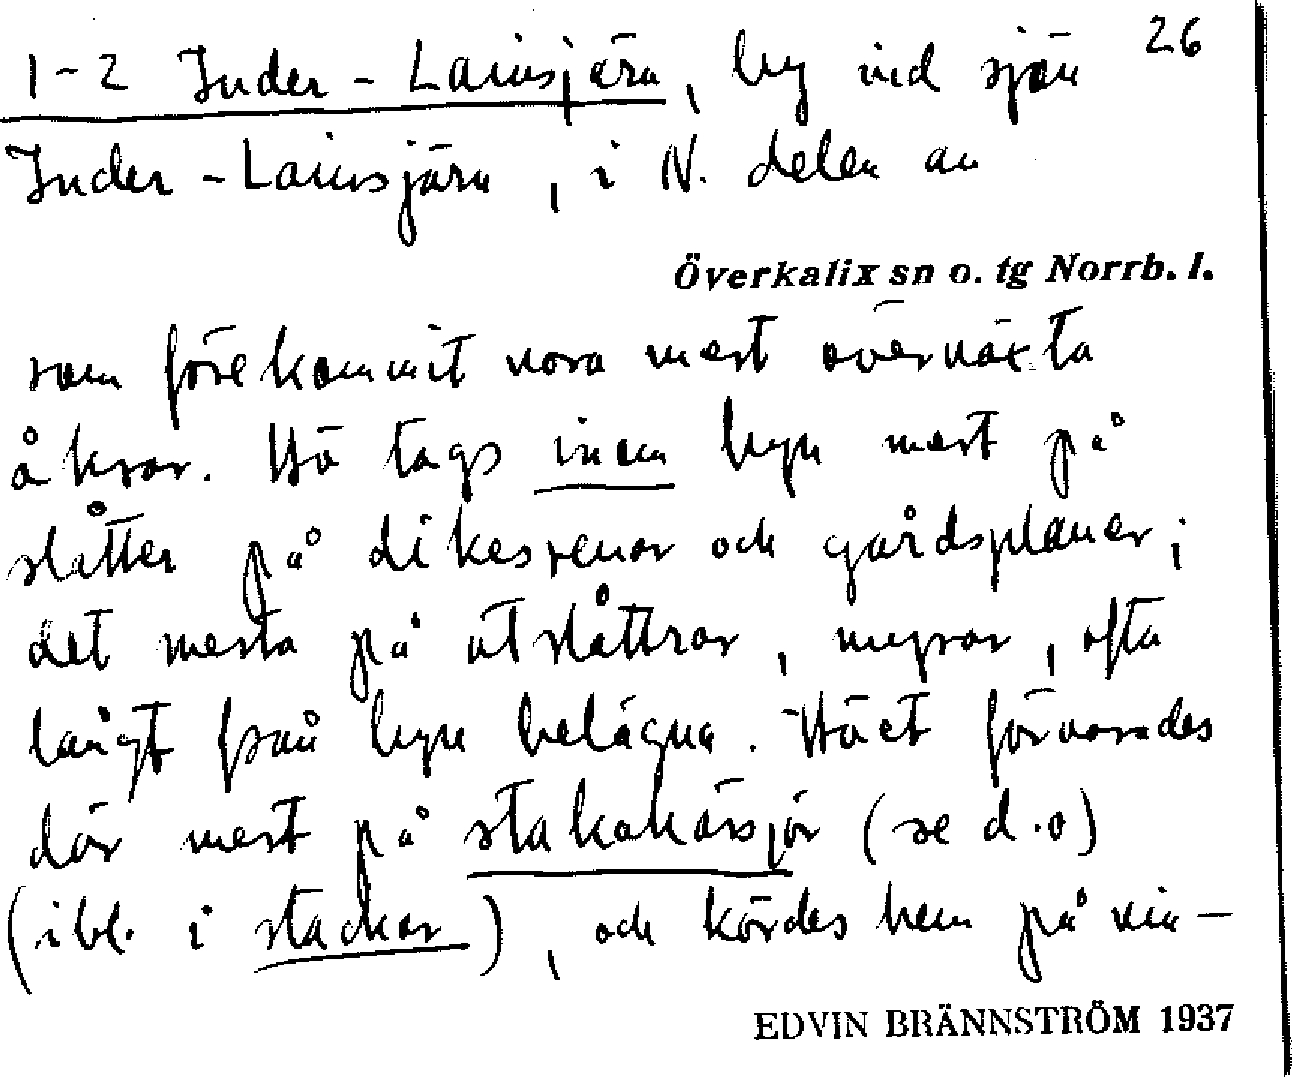 26
1-2 Inder-Lainsjärn, by vid sjön
Inder-Lainsjärn, i N. delen av
Överkalix sn o. tg Norrb. l.
som förekommit vara mest överväxta
åkrar. Hö tags inom byn mest på
slåtter på dikesrenar och gårdsplaner;
det mesta på utslåttrar, myrar, ofta
långt från byn belägna. Höet förvarades
där mest på stakahässjor (se d.o)
(ibl. i stackar), och kördes hem på vin-
EDVIN BRÄNNSTRÖM 1937